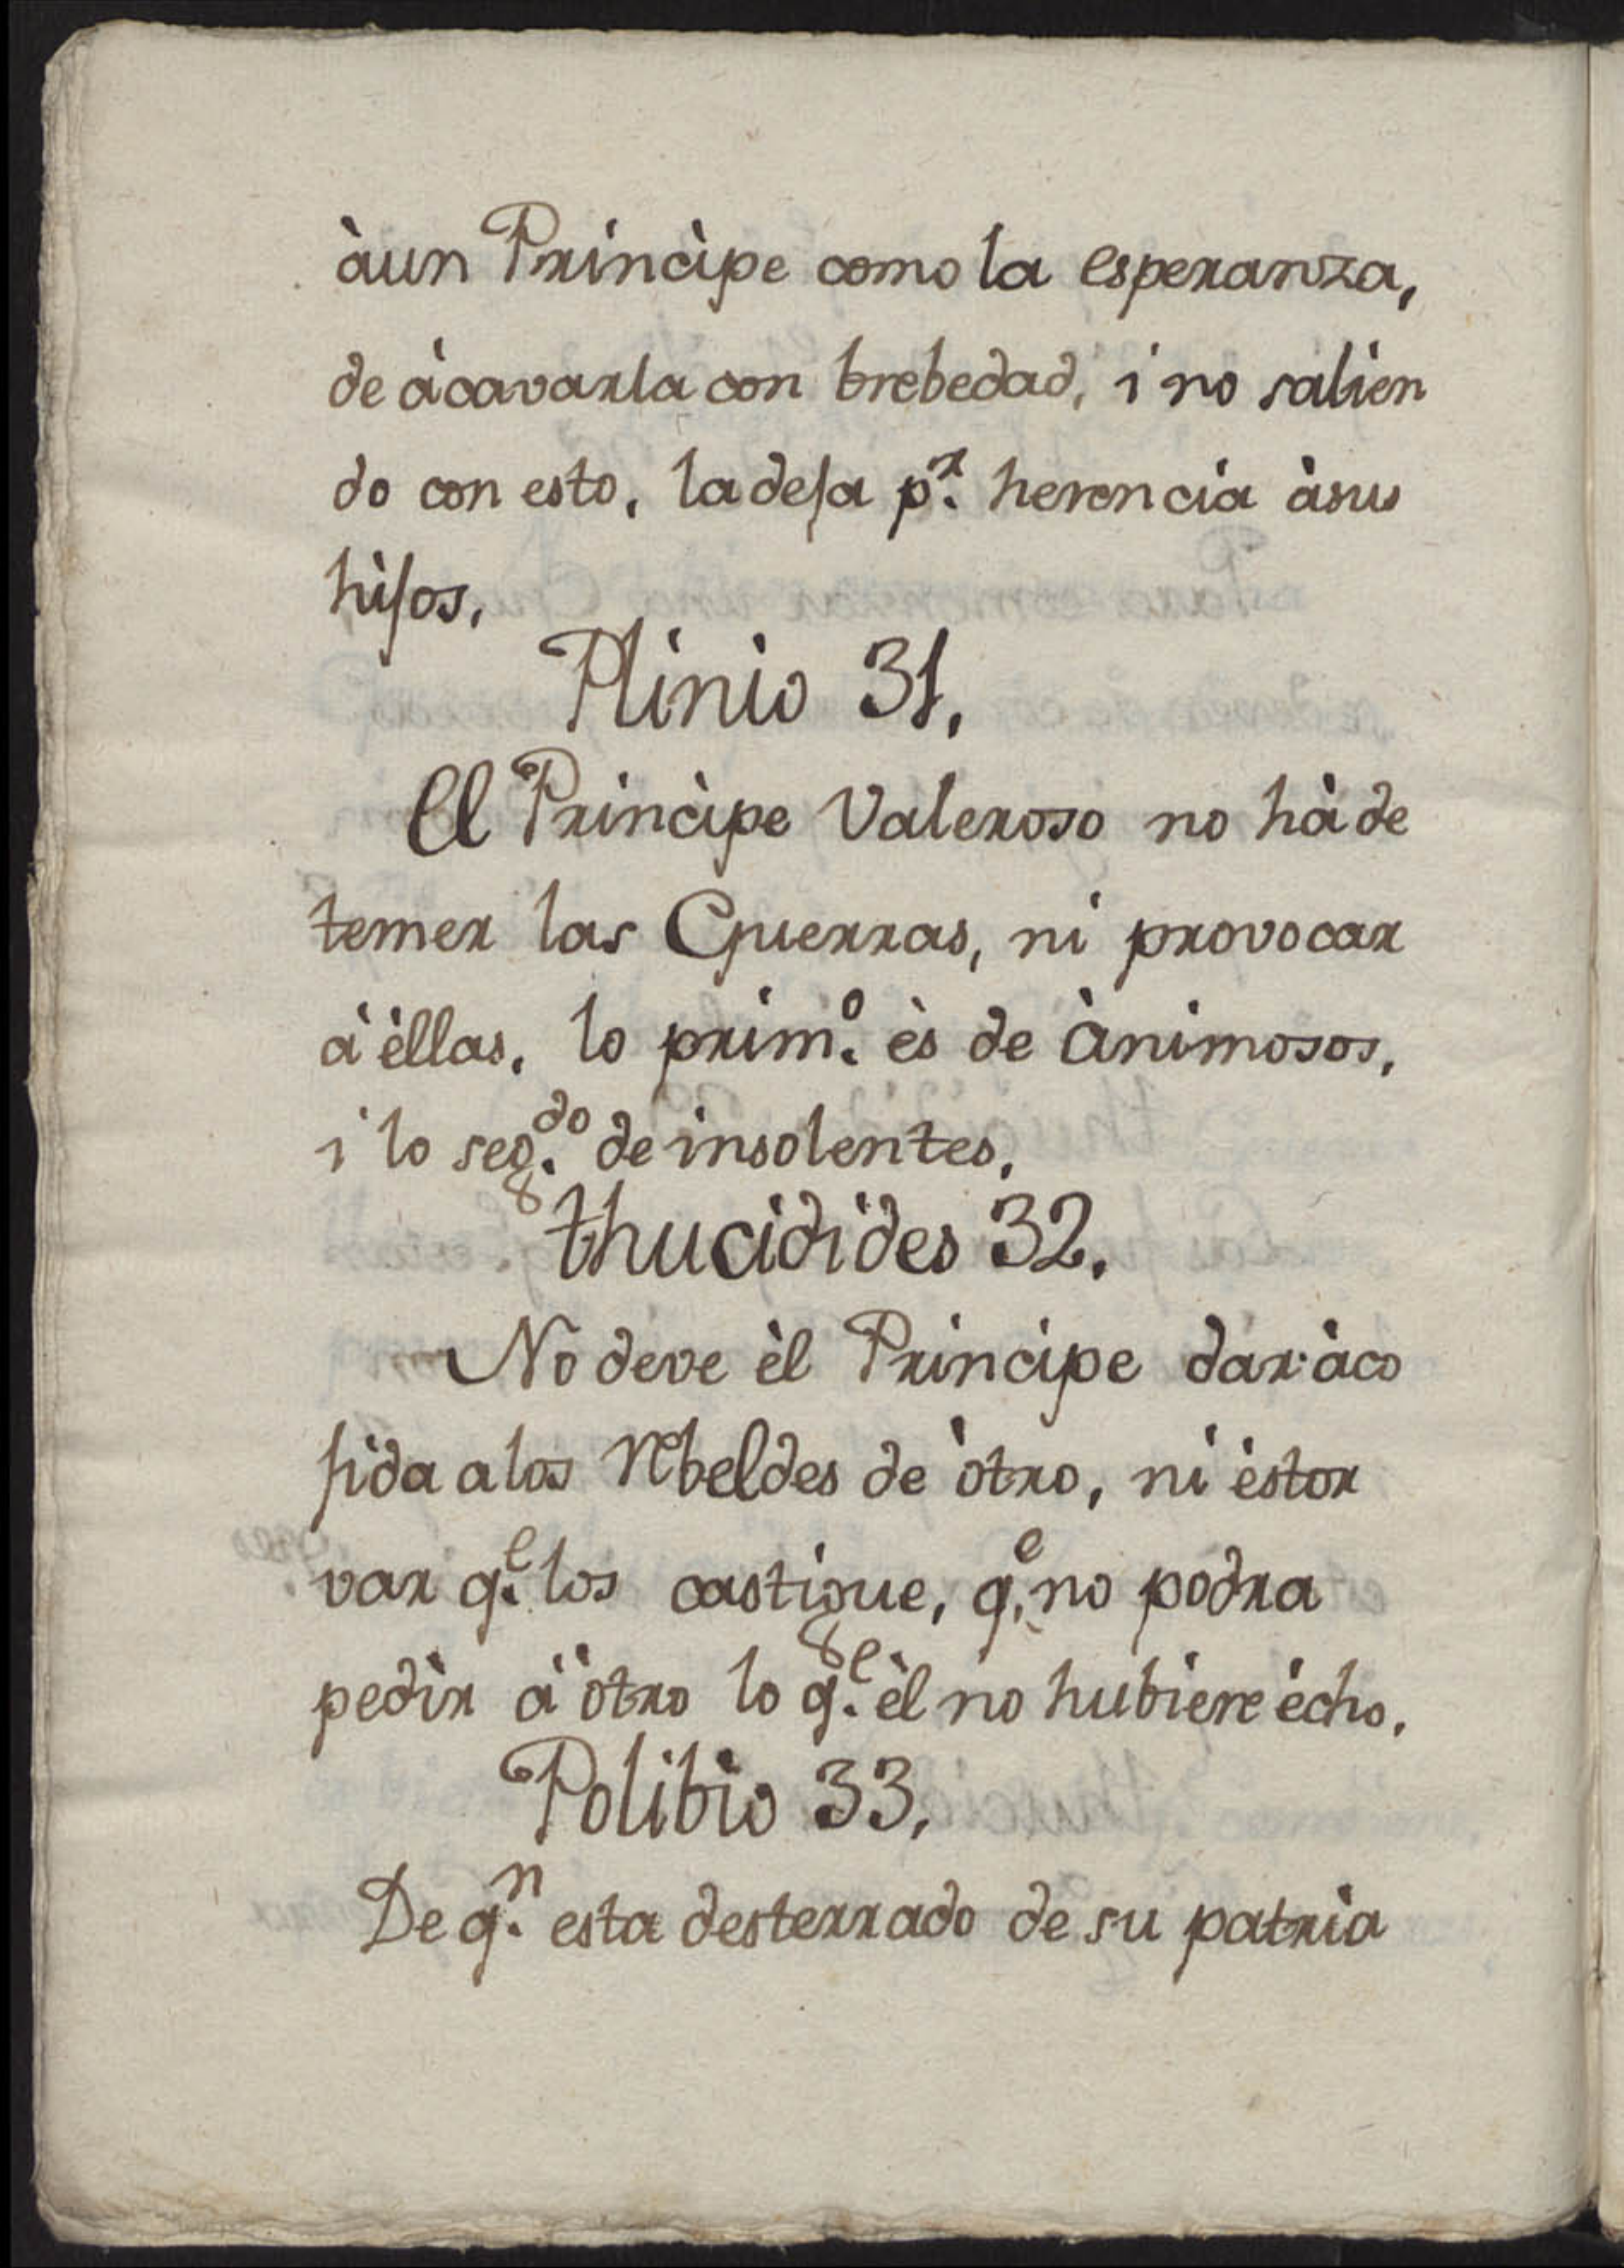 àun Principe como la esperanza,
de àcavarla con brebedad, i no salien
do con esto, la deja p.r herencia àsus
hijos,
Plinio 31,
El Principe Valeroso no hà de
temer las Guerras, ni provocar
à èllas, lo prim.o ès de Animosos,
i lo seg.do de insolentes,
thucidides 32,
No deve èl Principe dar àco
jida a los rebeldes de òtro, ni èstor
var q.e los castigue, q.e no podra
pedir à òtro lo q.e èl no hubiere ècho,
Polibio 33,
De q.n esta desterrado de su patria